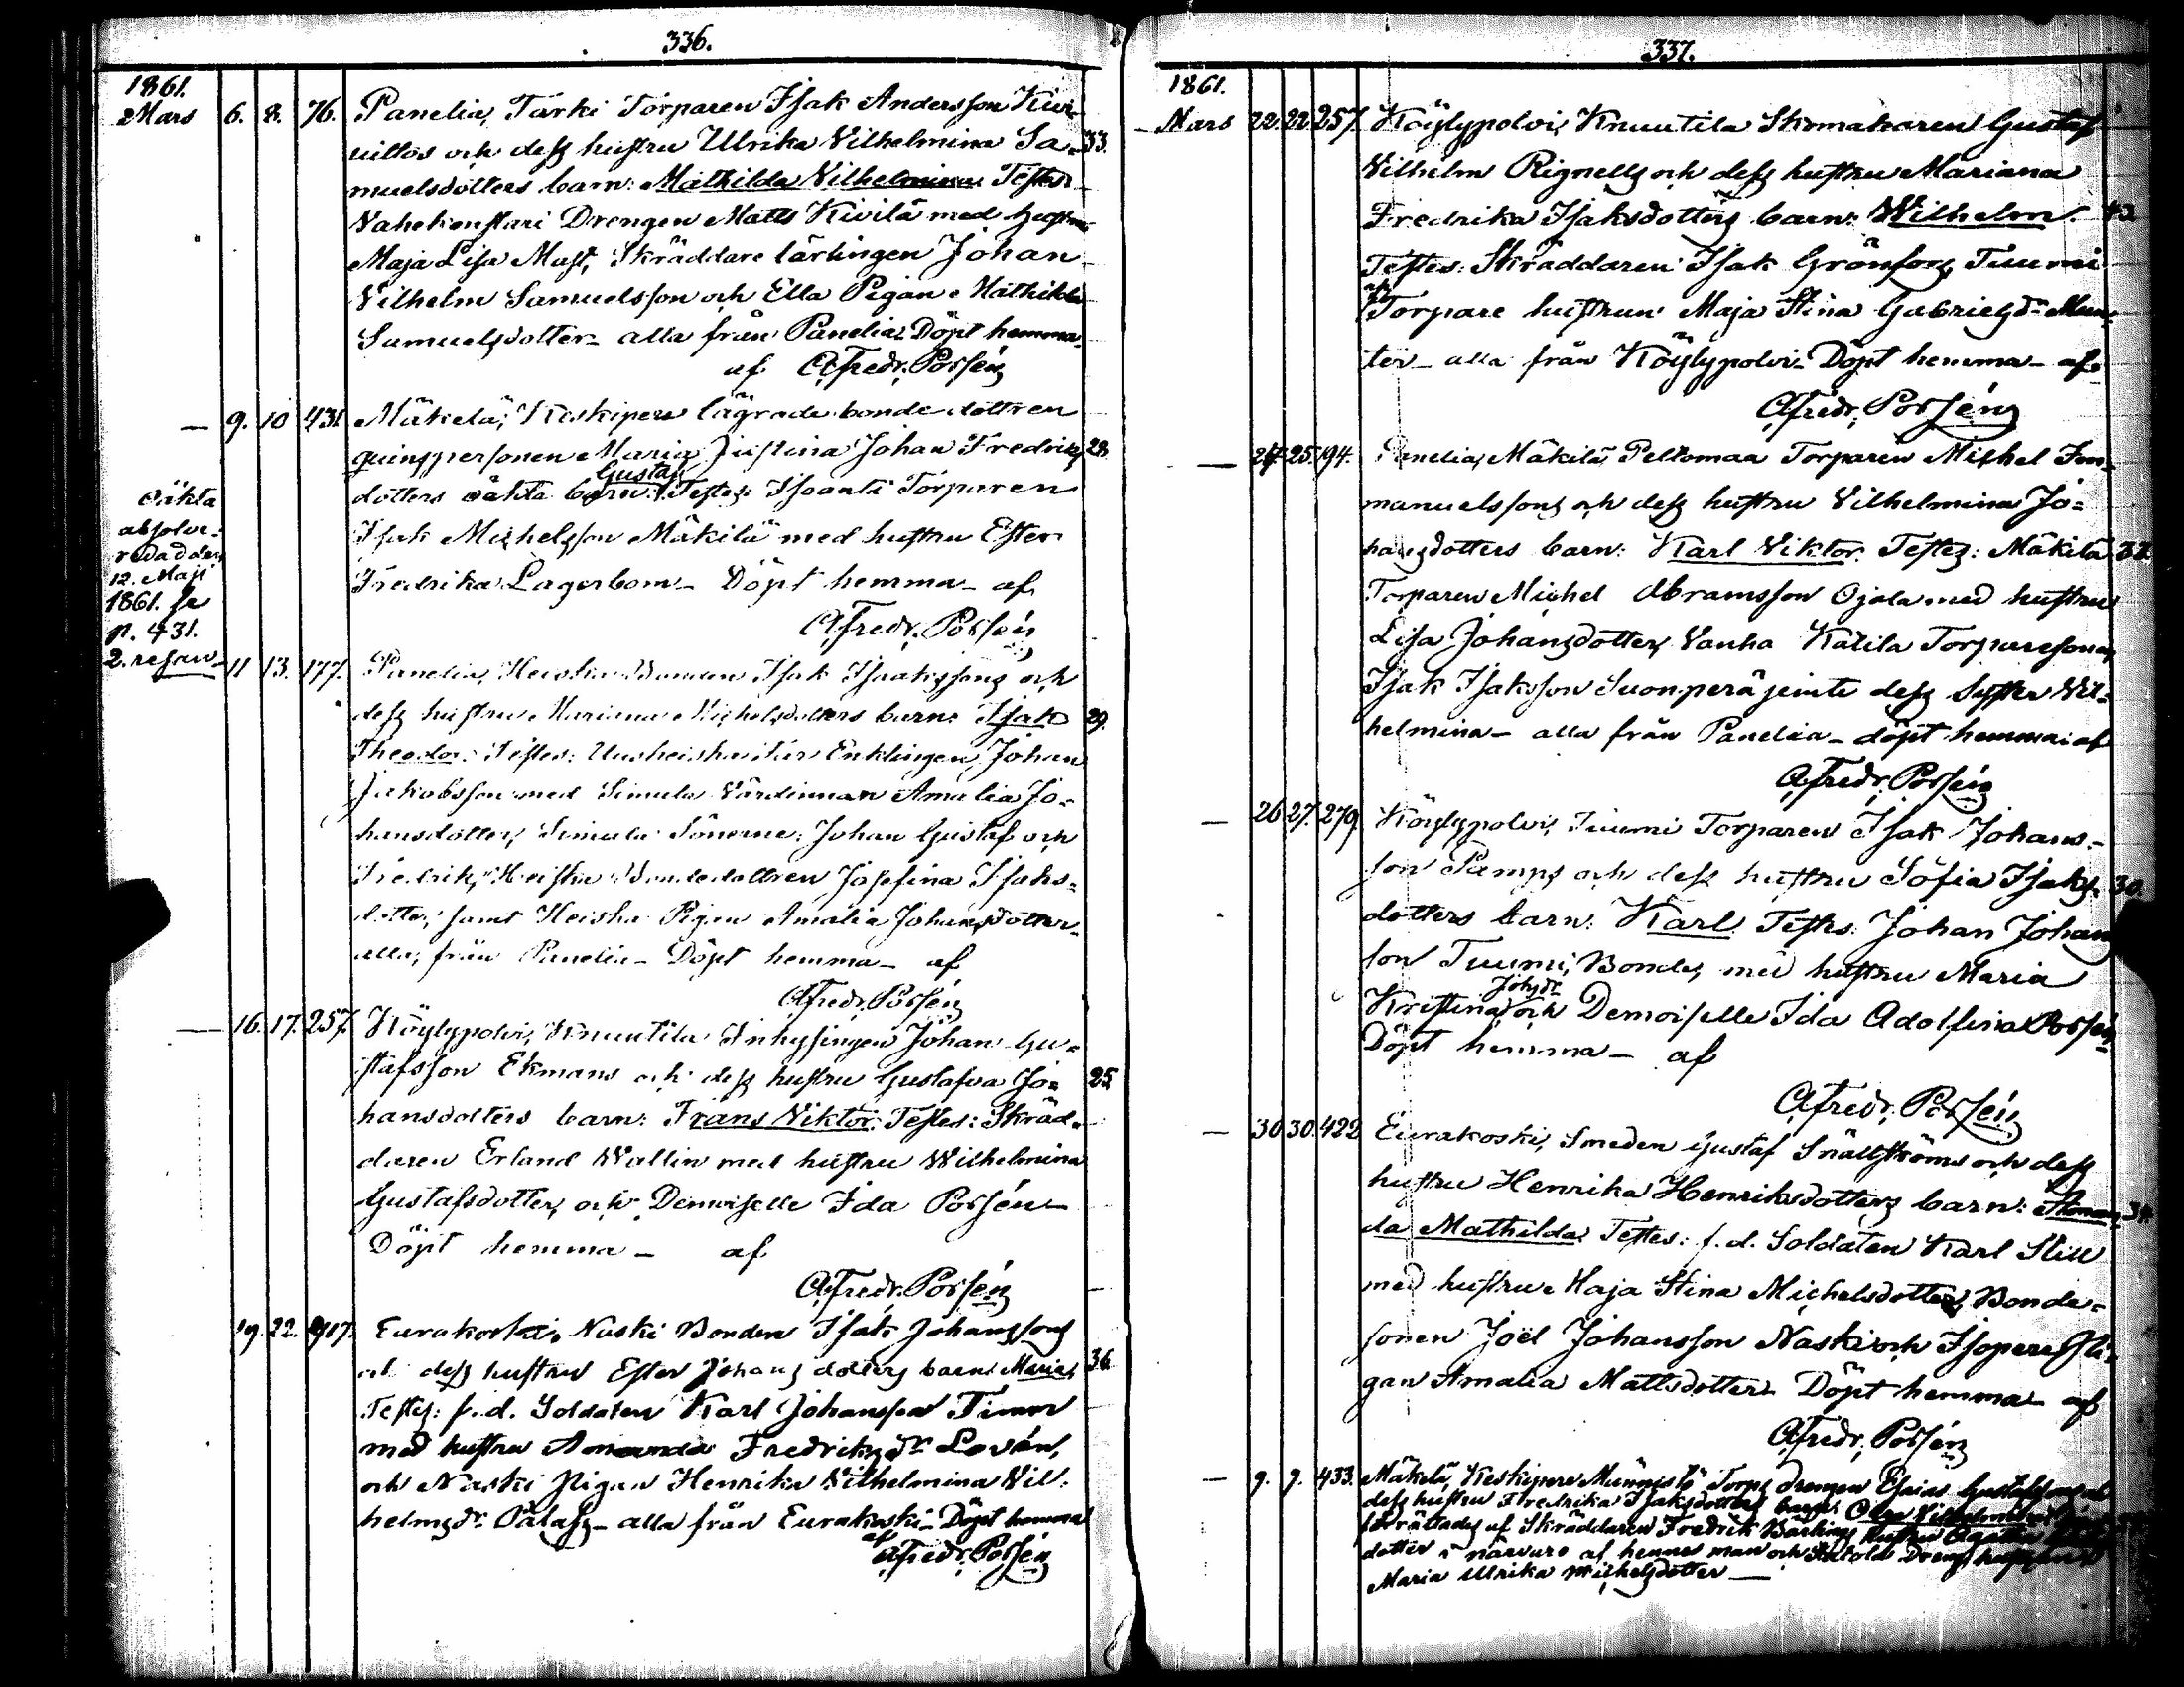 336.
1861.
Mars 6. 8. 76. Panelia, Tärki Torparen Isak Andersson Kivi-
niltos och dess hustru Ulrika Vilhelmina Sa- 33.
muelsdotters barn: Mathilda Vilhelmina Testes
Vahekenstari Drengen Matts Kivilä med hustru
Maja Lisa Matsd, Skräddare lärlingen Johan
Vilhelm Samuelsson och Ella Pigan Mathilda
Samuelsdotter - alla från Panelia - Döpt hemma
af AFredr. Porsén
— 9. 10 431 Mäkelä, Keskipere lägrade bonde dottren
qvinspersonen Maria Justina Johan Fredriks 28
Gustaf
dotters oäkta barn: Testes: Isoanti Torparen
Isak Michelsson Mäkilä med hustru Ester
Fredrika Lagerbom - Döpt hemma - af
AFredr. Porsén
Oäkta
absolve-
rad den
12. Maji
1861. se
p. 431.
2. resan
11 13. 177. Panelia, Heiska Bonden Isak Isaakssons och
dess hustru Mariana Michelsdotters barn: Isak 29.
Theodor. Testes: Uusheiska Enklingen Johan
Jakobsson med Simula Värdinnan Amalia Jo-
hansdotter, Simula Sönerne: Johan Gustaf och
Fredrik, Heiska Bondedottren Josefina Isaks-
dotter, samt Heiska Pigan Amalia Johansdotter
alla från Panelia - Döpt hemma - af
AFredr. Porsén
— 16. 17. 257. Köylypolvi, Knuutila Inhysingen Johan Gu-
stafsson Ekmans och dess hustru Gustafva Jo- 25
hansdotters barn: Frans Viktor. Testes: Skräd-
daren Erland Wallin med hustru Wilhelmina
Gustafsdotter, och Demoiselle Ida Porsén -
Döpt hemma - af
AFredr. Porsén
19. 22. 417. Eurakoski, Naski Bonden Isak Johanssons
och dess hustru Ester Johans dotters barn: Maria 36
Testes: f. d. Soldaten Karl Johansson Timor
med hustru Amanda Fredriks dr Lovén,
och Naski Pigan Henrika Vilhelmina Vil-
helms dr - alla från Eurakoski - Döpt hemma
af
AFredr. Porsén
337.
1861.
Mars 22. 22. 257. Köylypolvi, Knuutila Skomakaren Gustaf
Vilhelm Rignells och dess hustru Mariana
Fredrika Isaksdotters barn: Wilhelm. 43
Testes: Skräddaren Isak Grönfors, Tuumi
och
Torpare hustrun Maja Stina Gabrielsdr Mun-
ter - alla från Köylypolvi - Döpt hemma - af
AFredr. Porsén
— 24. 25. 94. Panelia, Mäkilä, Peltomaa Torparen Mikhel Im-
manuelssons och dess hustru Vilhelmina Jo-
hansdotters barn: Karl Viktor. Testes: Mäkilä
Torparen Michel Abramsson Ojala med hustru
Lisa Johansdotter, Vanha Katila Torparesonen
Isak Isaksson Suonperä jemte dess Syster Vil-
helmina - alla från Panelia - döpt hemma af
AFredr. Porsén
— 26 27. 279. Köylypolvi, Tuumi Torparen Isak Johans-
son Pamps och dess hustru Sofia Isaks- 30.
dotters barn: Karl. Testes: Johan Johans
son Tuumi, Bonde, med hustru Maria
Johsdr
Kristina, och Demoiselle Ida Adolfina Porsén
Döpt hemma - af
AFredr. Porsén
— 30. 30. 422 Eurakoski, Smeden Gustaf Snällströms och dess
hustru Henrika Henriksdotters barn: Aman-
da Mathilda Testes: f. d. Soldaten Karl Still
med hustru Maja Stina Michelsdotter, Bonde-
sonen Joël Johansson Naski och Isopere Pi-
gan Amalia Mattsdotter - Döpt hemma - af
AFredr. Porsén
— 9. 9. 433. Mäkelä, Keskipere Männistö Torps drengen Esaias Gustafssons och
dess hustru Fredrika Isaksdotters barn: Vilhelmina
förrättades af Skräddaren Fredrik hustru
dotter i närvaro af hennes man och Drengs hustrun
Maria Ulrika Michelsdotter —